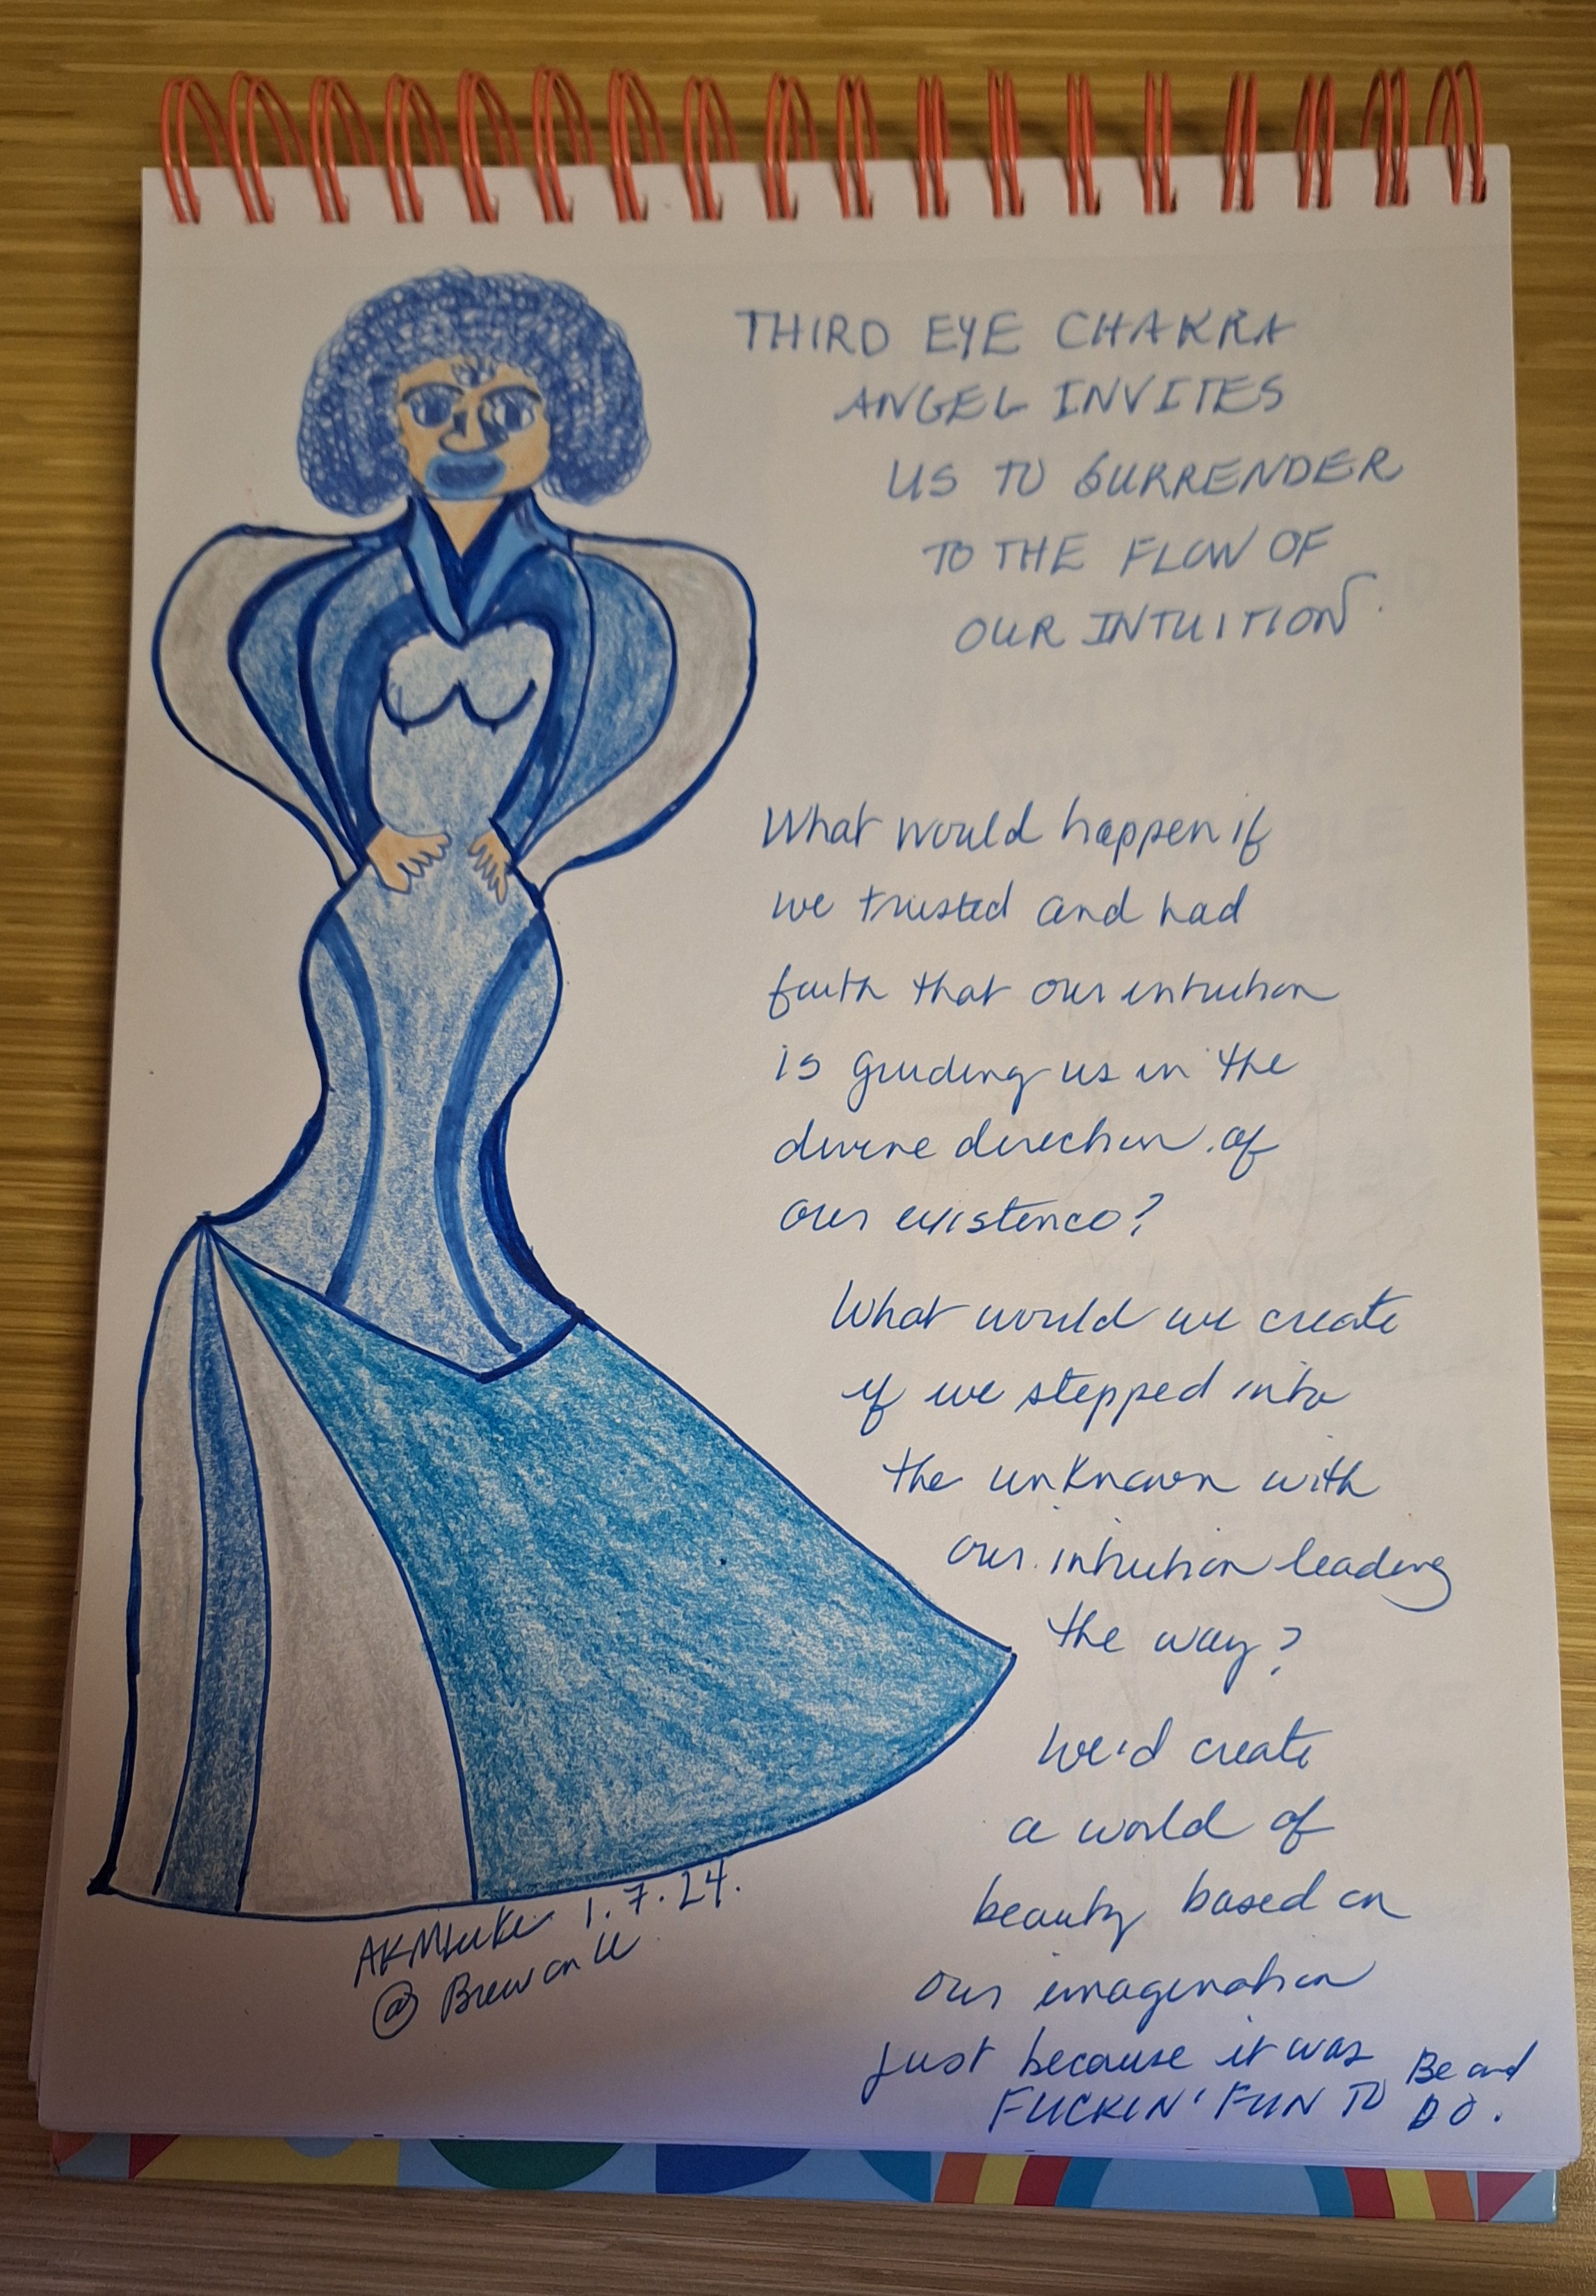 THIRD EYE CHAKRA
ANGEL INVITES
US TO SURRENDER
TO THE FLOW OF
OUR INTUITION.
What would happen if
we trusted and had
faith that our intuition
is guiding us in the
divine direction of
our existence?
What would we create
if we stepped into
the unknown with
our intuition leading
the way?
We'd create
a world of
beauty based on
our imagination
just because it was
FUCKIN' FUN TO Be and
DO.
AKMLuke 1.7.24.
@ Brew on U